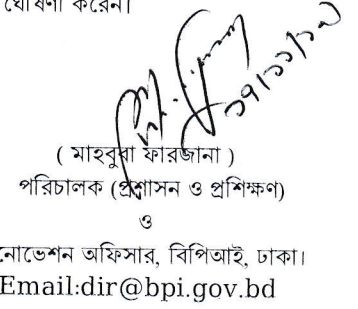 ঘোষণা করেন।
১৭/১১/১৬
( মাহবুবা ফারজানা )
পরিচালক (প্রশাসন ও প্রশিক্ষণ)
ও
নোভেশন অফিসার, বিপিআই, ঢাকা।
Email:dir@bpi.gov.bd